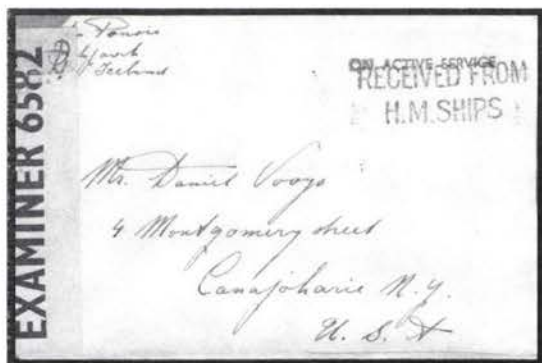 EXAMINER 6582
Iceland
ON ACTIVE SERVICE
RECEIVED FROM
H.M. SHIPS
Mr. Daniel Vooys
4 Montgomery street
Canajoharie N.Y.
U. S. A